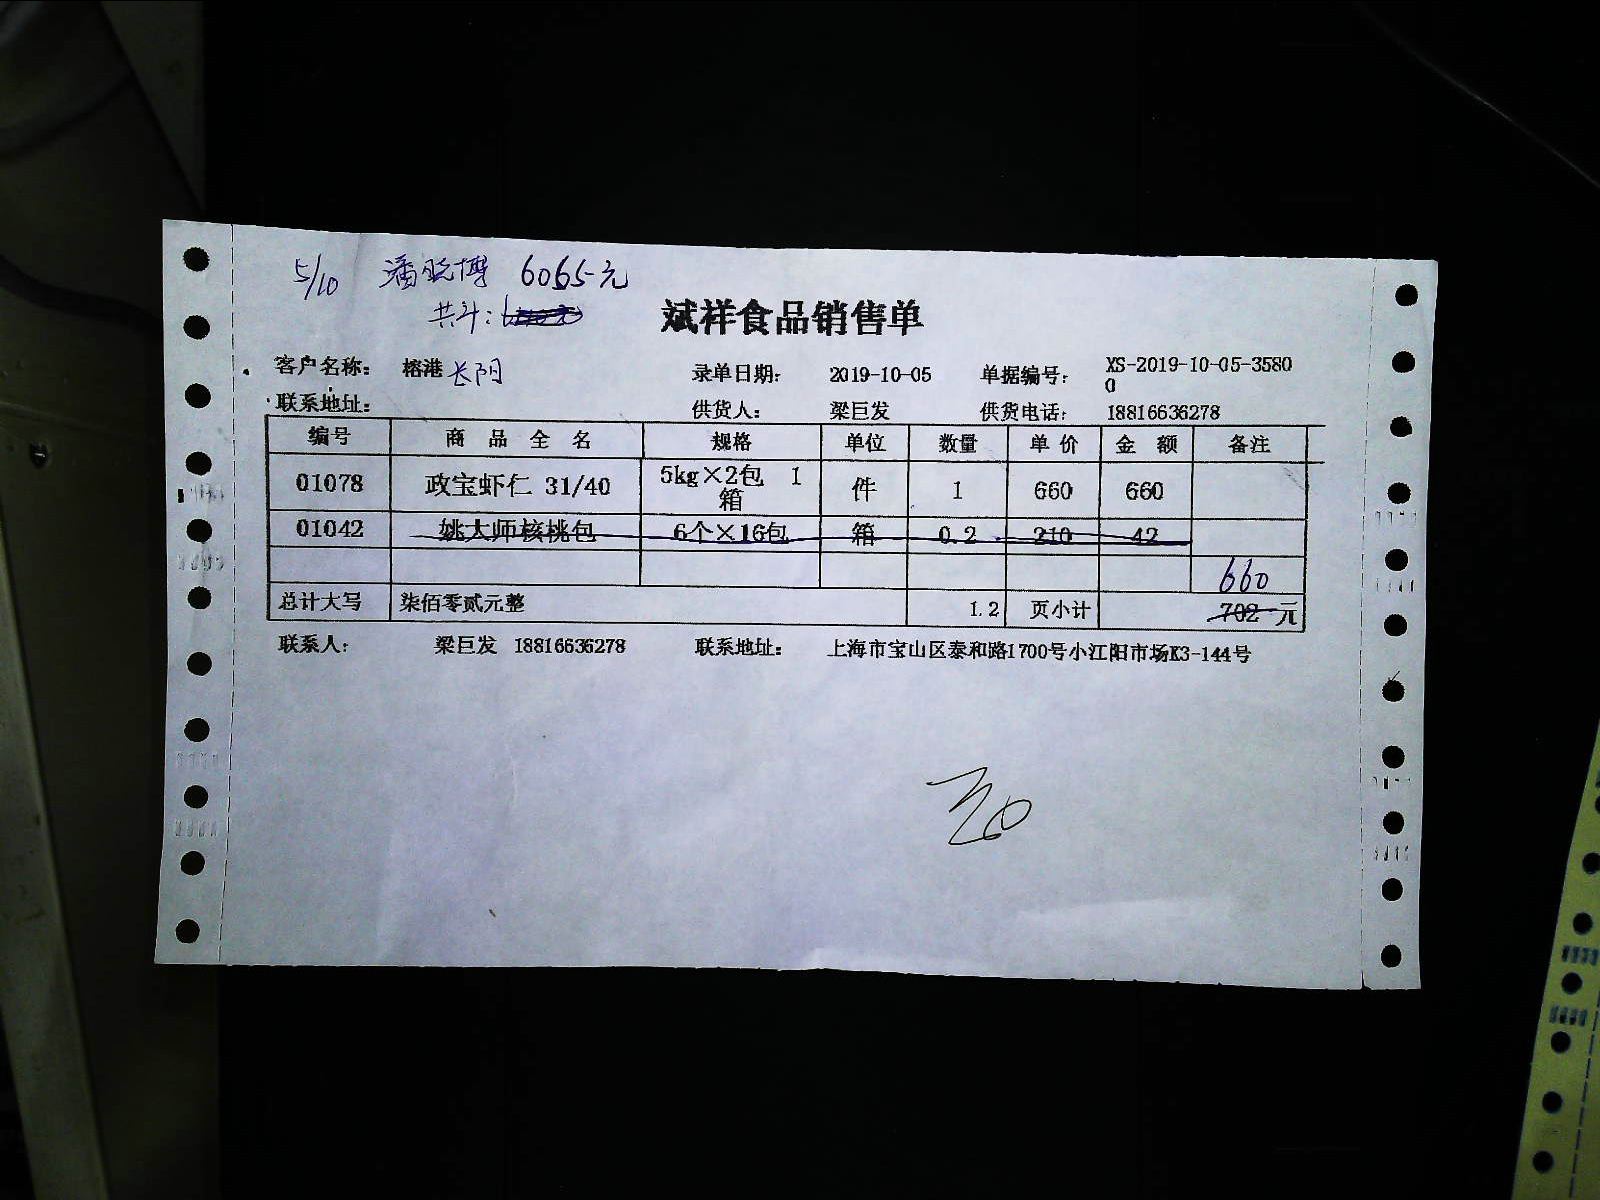 5/10 潘晓博 6065元
共计:
斌祥食品销售单
客户名称: 榕港 长阳 录单日期: 2019-10-05 单据编号: XS-2019-10-05-35800
联系地址: 供货人: 梁巨发 供货电话: 18816636278
编号 商品全名 规格 单位 数量 单价 金额 备注
01078 政宝虾仁 31/40 5kg×2包 1箱 件 1 660 660
01042 姚大师核桃包 6个×16包 箱 0.2 210 42
660
总计大写 柒佰零贰元整 1.2 页小计 702 元
联系人: 梁巨发 18816636278 联系地址: 上海市宝山区泰和路1700号小江阳市场K3-144号